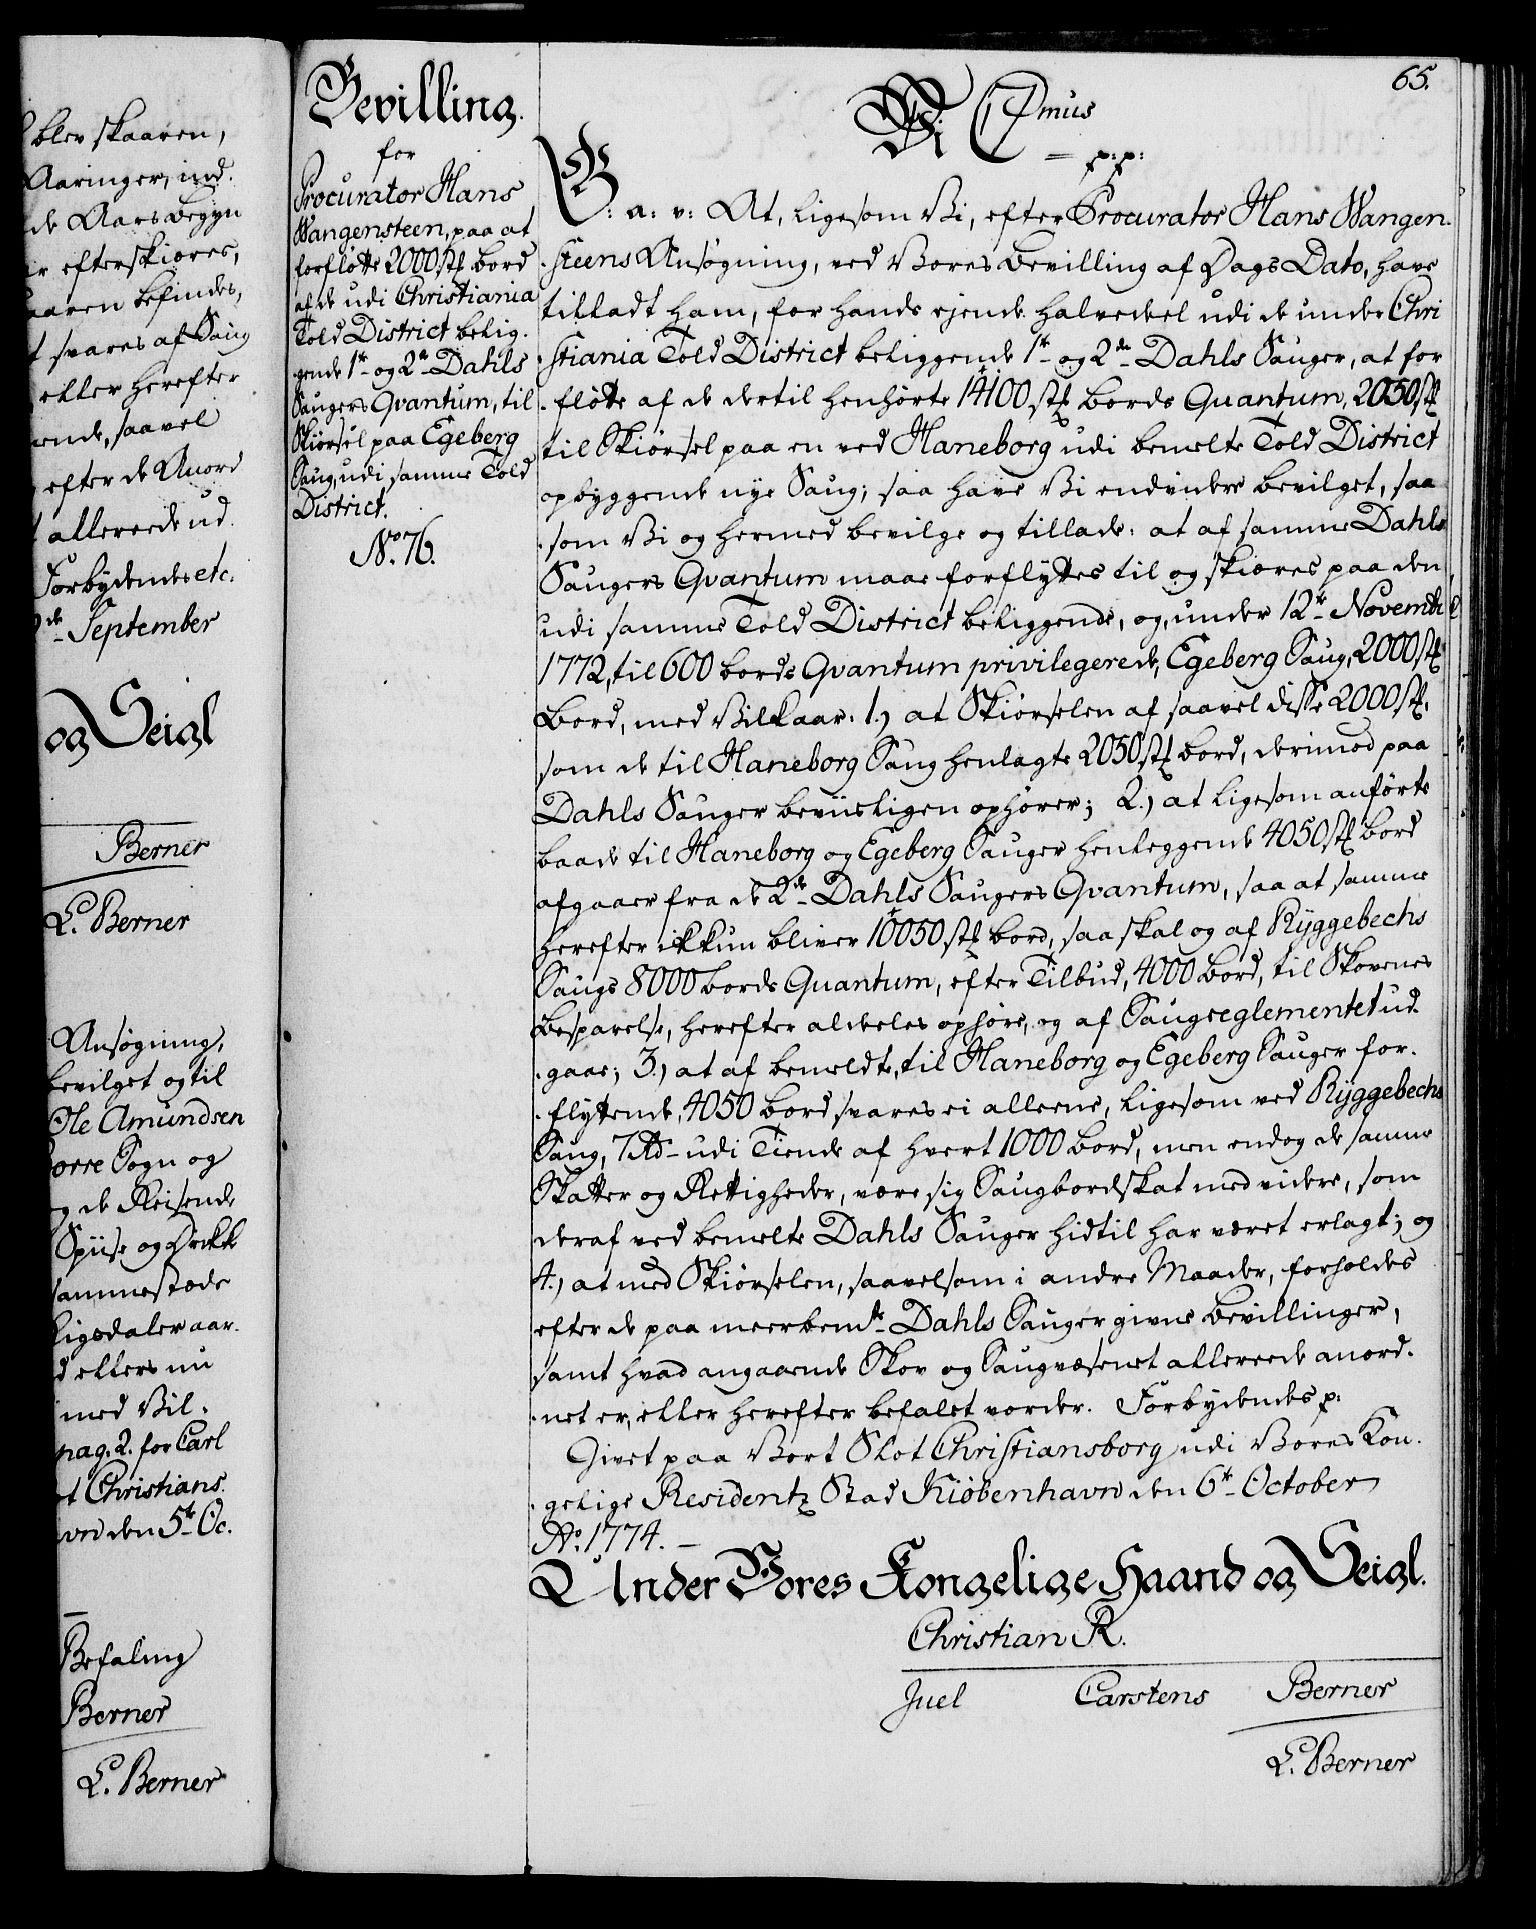 blev skaaren,
Aaringer, ind.
de Aars Begyn
er efterskiæres,
aaren befindes,
t svares af Saug
eller herefter
ende, saavel
efter de Anord
t allereede ud.
Forbydendes etc.
de September
og Seigl
Berner
L. Berner
Ansøgning,
bevilget og til
Ole Amundsen
orre Sogn og
g de Reisende
Spiise og Drikke
sammestæde
Rigsdaler aar.
d ellers nu
med Vil.
pag. 2. for Carl
t Christians.
vn den 5te Oc.
Befaling
Berner
L. Berner
Bevilling.
for
Procurator Hans
Wangensteen, paa at
forfløtte 2000 stk bord
af de udi Christiania
Told District belig.
gende 1te og 2de Dahls
Saugers Qvantum, til
Skiørsel paa Egeberg
Saug, udi samme Told
District.
No. 76.
65.
Wi C 7mus
p: p:
G: a: v: At, ligesom Vi, efter Procurator Hans Wangen.
steens Ansøgning, ved Vores Bevilling af Dags Dato, have
tilladt ham, for hands ejende halvedeel udi de under Chri
stiania Told District beliggende 1te og 2de Dahls Sauger, at for
fløtte af de dertil henhørte 14100 stk bords Quantum, 2050 stk
til Skiørsel paa en ved Haneborg udi bemelte Told District
opbyggende nye Saug; saa have Vi endvidere bevilget, saa
som Vi og hermed bevilge og tillade: at af samme Dahls
Saugers Qvantum maae forflyttes til og skiæres paa den
udi samme Told District beliggende, og, under 12te Novembr
1772, til 600 bords Qvantum privilegerede, Egeberg Saug, 2000 stk
Bord, med Vilkaar: 1.) at Skiørselen af saavel disse 2000 stk.
som de til Haneborg Saug henlagte 2050 stk bord, derimod paa
Dahls Sauger beviisligen ophører; 2.) at ligesom anførte
baade til Haneborg og Egeberg Sauger henleggende 4050 stk bord
afgaaer fra de 2de Dahls Saugers Qvantum, saa at samme
herefter ikkun bliver 10050 stk bord, saa skal og af Ryggebechs
Saugs 8000 bords Quantum, efter Tilbud, 4000 Bord, til Skovenes
Besparelse, herefter aldeles ophøre, og af Saugreglementet ud
gaae; 3.) at af bemeldte, til Haneborg og Egeberg Sauger for.
flyttende, 4050 Bord svares ei alleene, ligesom ved Ryggebechs
Saug, 7 Rd udi Tiende af hvert 1000 Bord, men endog de samme
Skatter og Rettigheder, være sig Saugbordskat med videre, som
deraf ved bemelte Dahls Sauger hidtil har været erlagt; og
4.) at med Skiørselen, saavelsom i andre Maader, forholdes
efter de paa meerbemte Dahls Sauger givne Bevillinger,
samt hvad angaaende Skov og Saugvæsenet allereede anord.
net er, eller herefter befalet vorder. Forbydendes p:
Givet paa Vort Slot Christiansborg udi Vores Kon.
gelige Residentz Stad Kiøbenhavn den 6te October
Ao. 1774.
Under Vores Kongelige Haand og Seigl.
Christian R.
Juel Carstens Berner
L. Berner